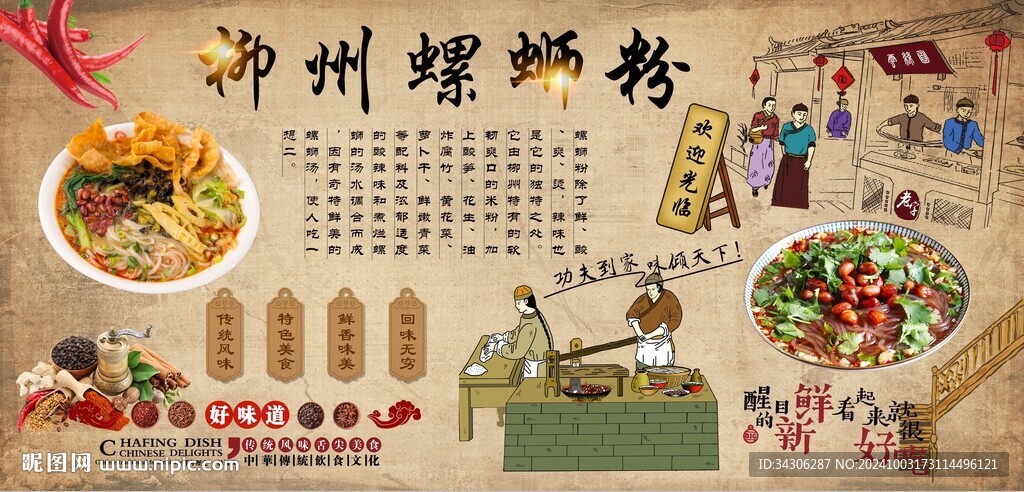 柳州螺蛳粉
螺蛳粉除了鲜、酸
、爽、烫,辣味也
是它的独特之处。
它由柳州特有的软
韧爽口的米粉,加
上酸笋、花生、油
炸腐竹、黄花菜、
萝卜干、鲜嫩青菜
等配料及浓郁适度
的酸辣味和煮烂螺
蛳的汤水调合而成
,因有奇特鲜美的
螺蛳汤,使人吃一
想二。
欢迎光临
老字
功夫到家 味倾天下!
传统风味
特色美食
鲜香味美
回味无穷
好味道
CHAFING DISH
CHINESE DELIGHTS
传统风味舌尖美食
中華傳統飲食文化
醒目的新鲜
看起来就很好
昵图网 www.nipic.com
ID:34306287 NO:20241003173114496121